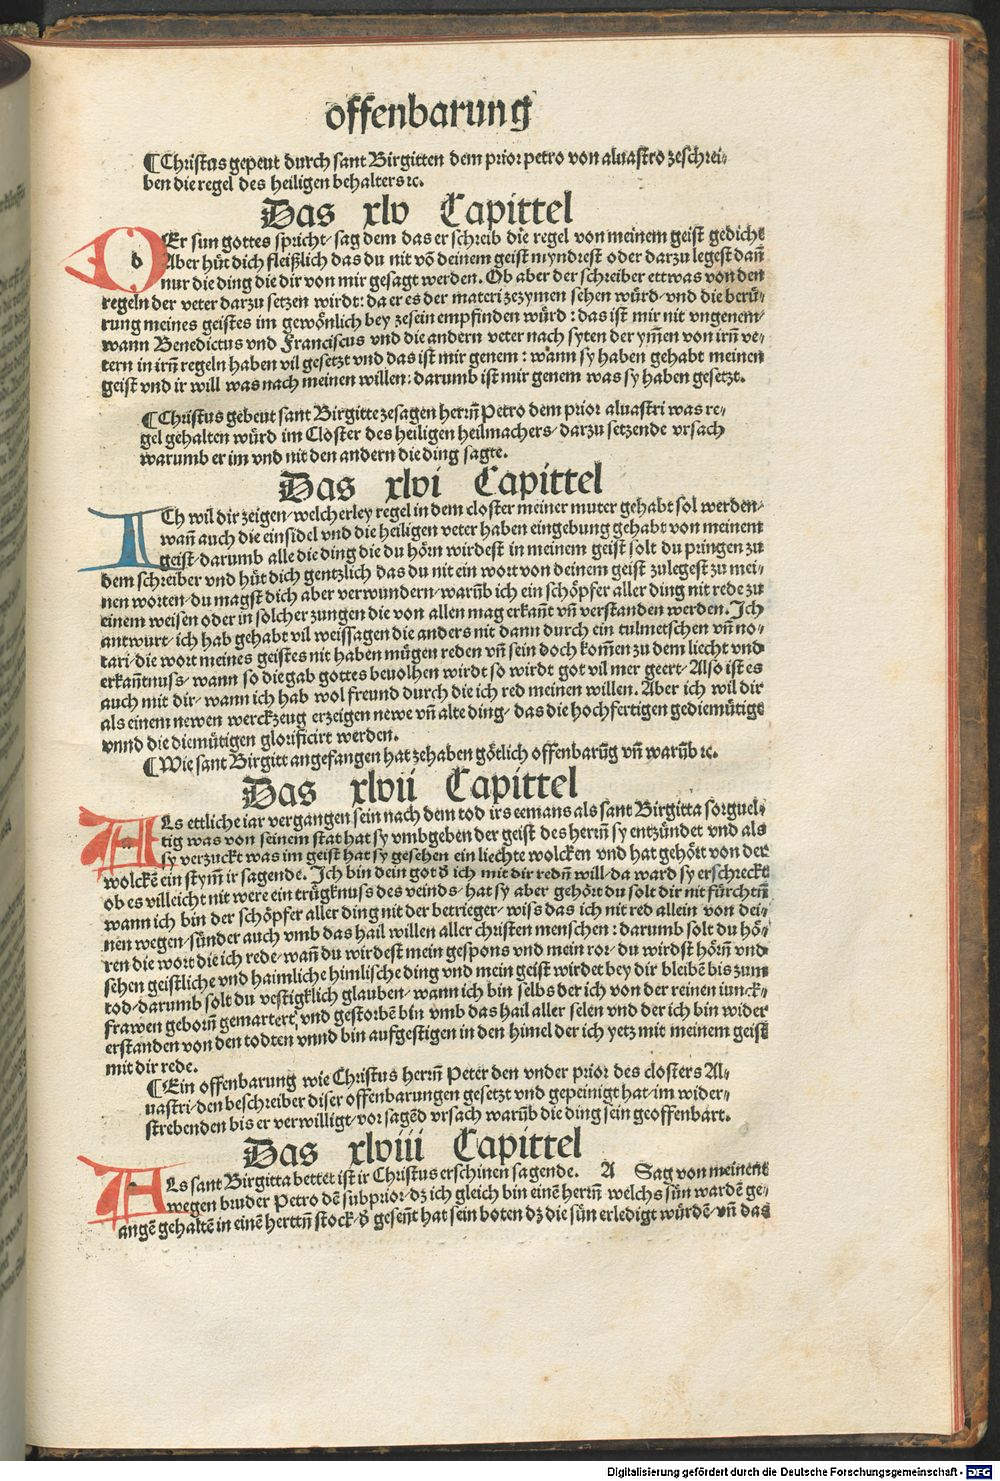 offenbarung
¶Christus gepeut durch sant Birgitten dem prior petro von aluastro zeschrei⸗
ben die regel des heiligen behalters ꝛc.
Das xlv Capittel
DEr sun gottes spricht/ sag dem das er schreib die regel von meinem geist gedicht
Aber hüt dich fleißlich das du nit võ deinem geist myndrest oder darzu legest dañ
nur die ding die dir von mir gesagt werden. Ob aber der schreiber ettwas von den
regeln der veter darzu setzen wirdt: da er es der materi zezymen sehen würd/ vnd die berü⸗
rung meines geistes im gewönlich bey zesein empfinden würd: das ist mir nit vngenem/
wann Benedictus vnd Franciscus vnd die andern veter nach syten der ym̃en von irñ ve⸗
tern in irñ regeln haben vil gesetzt vnd das ist mir genem: wann sy haben gehabt meinen
geist vnd ir will was nach meinen willen: darumb ist mir genem was sy haben gesetzt.
¶Christus gebeut sant Birgitte zesagen herrñ Petro dem prior aluastri was re⸗
gel gehalten würd im Closter des heiligen heilmachers/ darzu setzende vrsach
warumb er im vnd nit den andern die ding sagte.
Das xlvi Capittel
ICh wil dir zeigen/ welcherley regel in dem closter meiner muter gehabt sol werden/
wañ auch die einsidel vnd die heiligen veter haben eingebung gehabt von meinem
geist/ darumb alle die ding die du hörn wirdest in meinem geist solt du pringen zu
dem schreiber vnd hüt dich gentzlich das du nit ein wort von deinem geist zulegest zu mei⸗
nen worten/ du magst dich aber verwundern/ warũb ich ein schöpfer aller ding nit rede zu
einem weisen oder in solcher zungen die von allen mag erkañt vñ verstanden werden. Ich
antwurt/ ich hab gehabt vil weissagen die anders nit dann durch ein tulmetschen vñ no⸗
tari/ die wort meines geistes nit haben mügen reden vñ sein doch kom̃en zu dem liecht vnd
erkañtnuss/ wann so die gab gottes beuolhen wirdt so wirdt got vil mer geert/ Also ist es
auch mit dir/ wann ich hab wol freund durch die ich red meinen willen. Aber ich wil dir
als einem newen werckzeug erzeigen newe vñ alte ding/ das die hochfertigen gediemütigt
vnnd die diemütigen glorificirt werden.
¶Wie sant Birgitt angefangen hat zehaben götlich offenbarũg vñ warũb ꝛc.
Das xlvii Capittel
ALs ettliche iar vergangen sein nach dem tod irs eemans als sant Birgitta sorguel⸗
tig was von seinem stat hat sy vmbgeben der geist des herrñ sy entzündet vnd als
sy verzuckt was im geist hat sy gesehen ein liechte wolcken vnd hat gehört von der
wolckẽ ein stym̃ ir sagende. Ich bin dein got d̕ ich mit dir redñ will/ da ward sy erschreckt
ob es villeicht nit were ein trügknuss des veinds/ hat sy aber gehört du solt dir nit fürchtñ
wann ich bin der schöpfer aller ding nit der betrieger/ wiss das ich nit red allein von dei⸗
nen wegen/ sünder auch vmb das hail willen aller christen menschen: darumb solt du hö⸗
ren die wort die ich rede/ wañ du wirdest mein gespons vnd mein ror/ du wirdst hörñ vnd
sehen geistliche vnd haimliche himlische ding vnd mein geist wirdet bey dir bleibẽ bis zum
tod/ darumb solt du vestigklich glauben/ wann ich bin selbs der ich von der reinen iunck⸗
frawen geborñ gemartert/ vnd gestorbẽ bin vmb das hail aller selen vnd der ich bin wider
erstanden von den todten vnnd bin aufgestigen in den himel der ich yetz mit meinem geist
mit dir rede.
¶Ein offenbarung wie Christus herrñ Peter den vnder prior des closters Al⸗
uastri/ den beschreiber diser offenbarungen gesetzt vnd gepeinigt hat/ im wider⸗
strebenden bis er verwilligt/ vor sagẽd vrsach warũb die ding sein geoffenbart.
Das xlviii Capittel
ALs sant Birgitta bettet ist ir Christus erschinen sagende. A Sag von meinent
wegen bruder Petro dẽ subprior/ dz ich gleich bin einẽ herrñ welchs sün wardẽ ge⸗
angẽ gehaltẽ in einẽ herttñ stock/ d̕ gesent hat sein boten dz die sün erledigt würdẽ/ vñ das
Digitalisierung gefördert durch die Deutsche Forschungsgemeinschaft - DFG